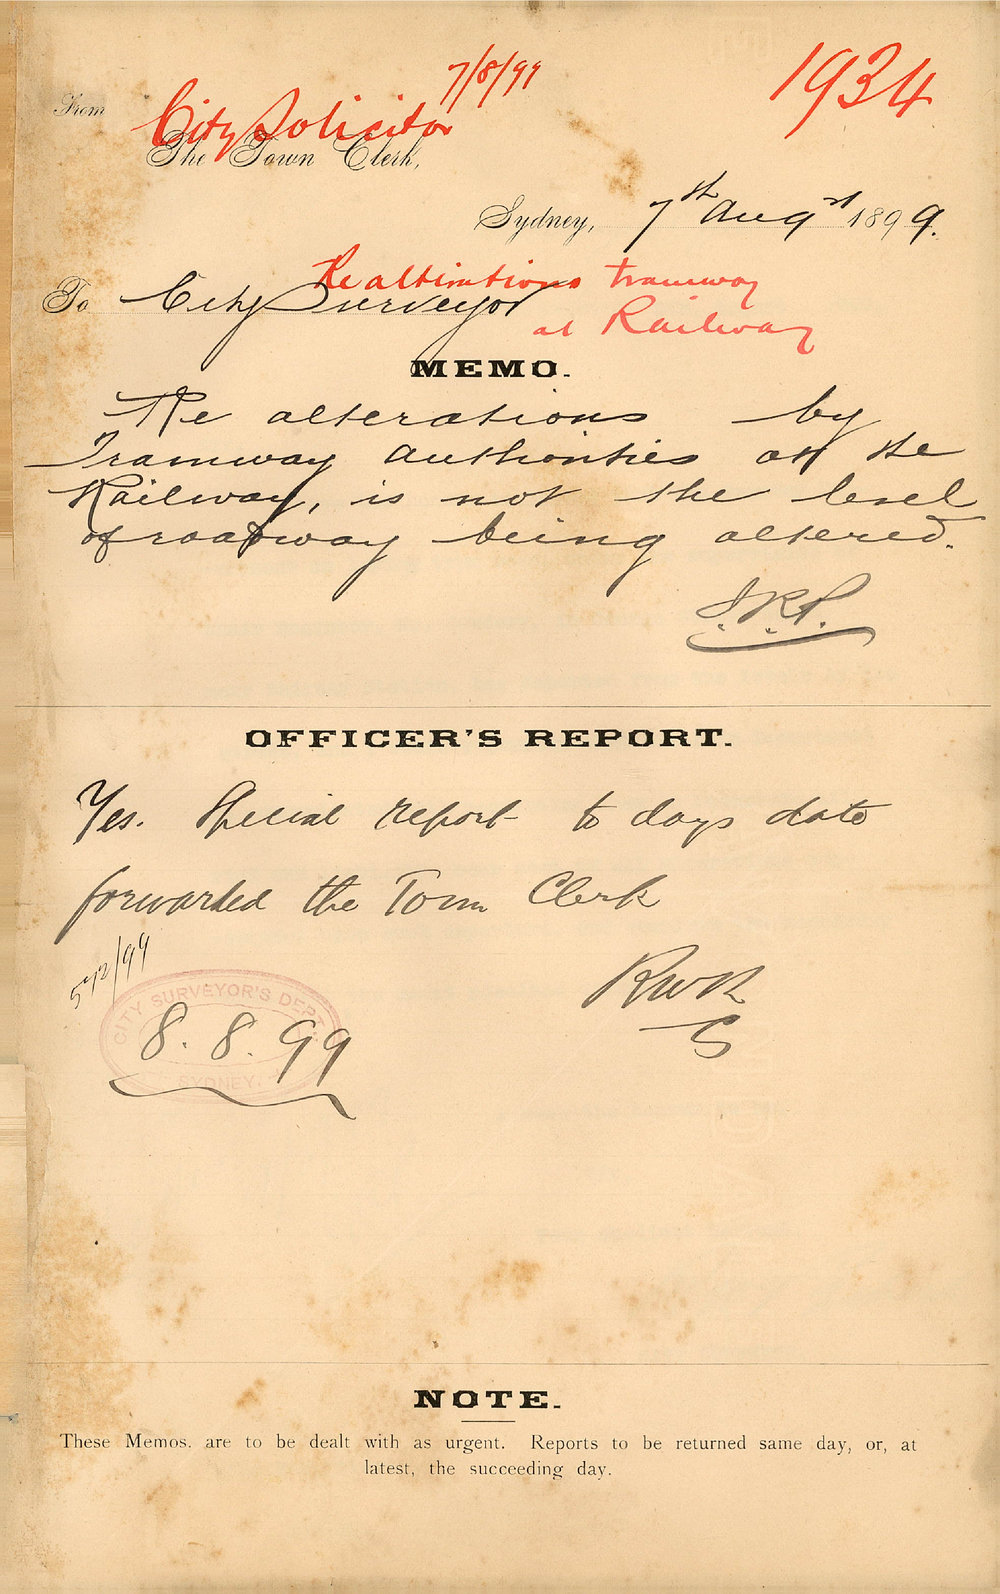 7/8/99
1934
From
City Solicitor
The Town Clerk,
Sydney, 7th Augst 1899.
Re altirations tramway
To City Surveyor
at Railway
MEMO.
Re alterations by
Tramway Authorities at the
Railway, is not the level
of roadway being altered.
OFFICER'S REPORT.
Yes. Special report to days date
forwarded the Town Clerk
572/99
RWR
CITY SURVEYOR'S DEPT
8.8.99
SYDNEY.
NOTE.
These Memos. are to be dealt with as urgent. Reports to be returned same day, or, at
latest, the succeeding day.